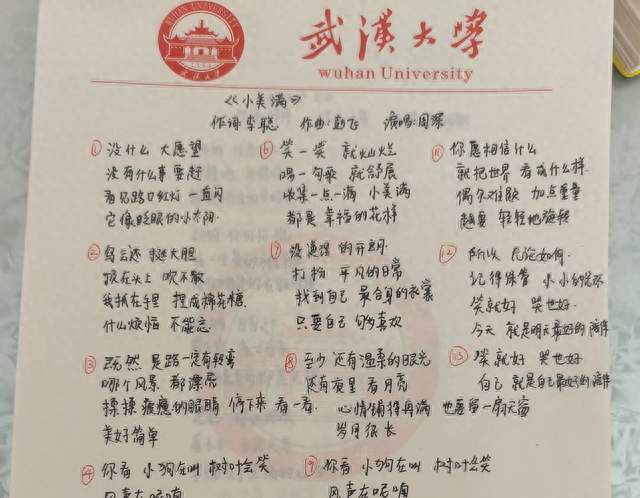 武漢大學
wuhan University
WUHAN UNIVERSITY
《小美满》
作词:李聪 作曲:赵飞 演唱:周深
① 没什么 大愿望
没有什么事要赶
看见路口红灯 一直闪
它像眨眼的小太阳.
② 乌云还 挺大胆
顶在头上 吹不散
我抓在手里 捏成棉花糖
什么烦恼 不能忘
③ 既然 是路一定有转弯
哪个风景 都漂亮
揉揉疲惫的眼睛 停下来 看一看.
美好简单
④ 你看 小狗在叫 树叶会笑
风声在呢喃
⑥ 笑一笑 就灿烂
唱一句歌 就舒展
收集一点一滴 小美满
都是 幸福的花样
⑦ 的开朗
打扮 平凡的日常
找到自己 最合身的衣裳
只要自己 够喜欢
⑧ 至少 还有温柔的眼光
还有夜里 看月亮
心情铺得再满 也要留一扇天窗
岁月很长
⑨ 你看 小狗在叫 树叶会笑
风声在呢喃
11 你愿相信什么
就把世界 看成什么样.
偶尔难题 加点重量
越要 轻轻地旋转
12 所以 无论如何.
记得保管 小小的光环
笑就好 哭也好.
今天 就是明天最好的陪伴
13 笑就好 哭也好
自己 就是自己最好的陪伴